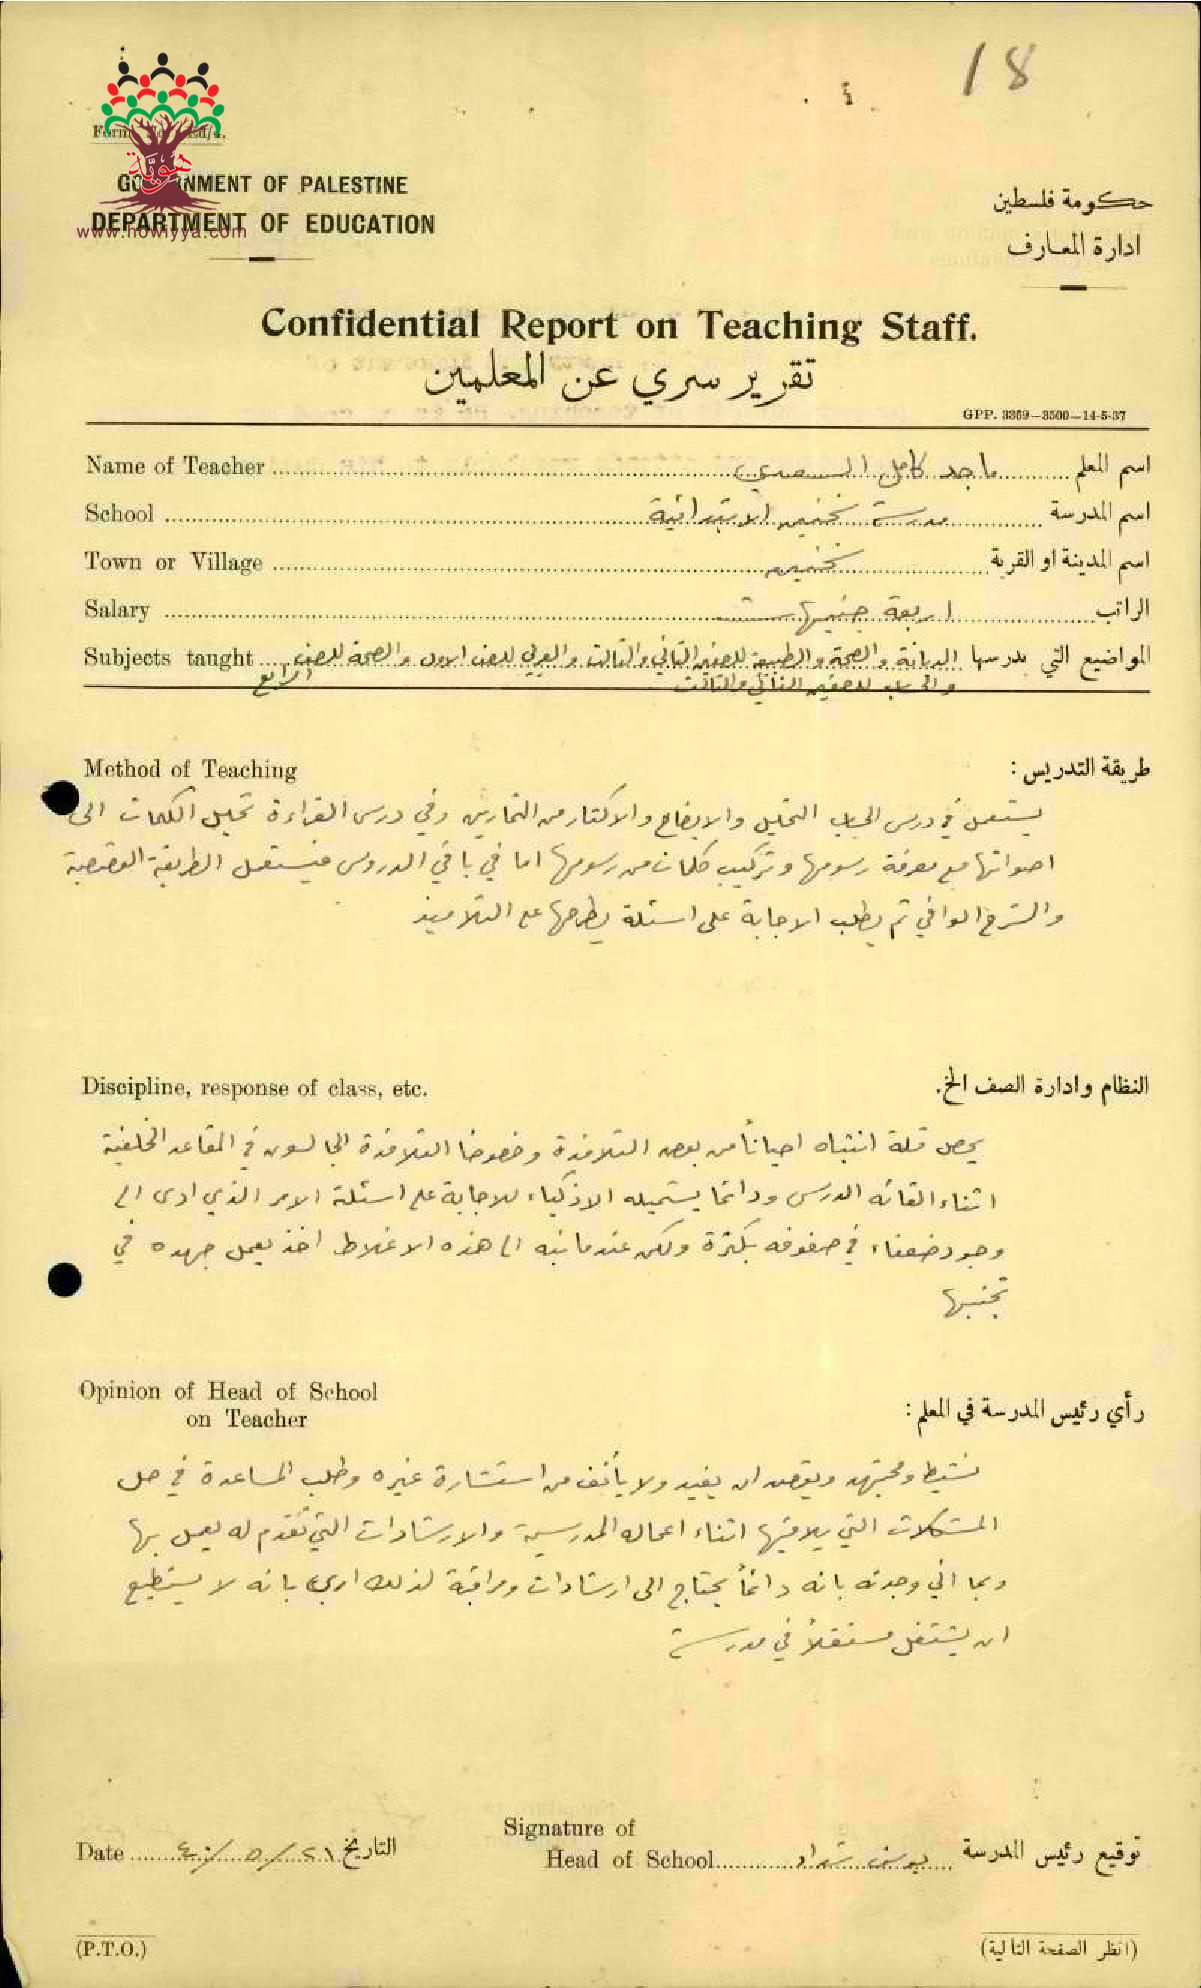 18
هوية
www.howiyya.com
GOVERNMENT OF PALESTINE
DEPARTMENT OF EDUCATION
حكومة فلسطين
ادارة المعارف
Confidential Report on Teaching Staff.
تقرير سري عن المعلمين
GPP. 3369—3500—14-5-37
Name of Teacher ماجد كامل السعدي اسم المعلم
School مدرسة الابتدائية اسم المدرسة
Town or Village اسم المدينة او القرية
Salary اربعة جنيهات الراتب
Subjects taught المواضيع التي يدرسها الديانة والصحة والطبيعة للصفين الثاني والثالث والعربي للصف الاول والصحة للصف الرابع
والحساب للصفين الثاني والثالث
Method of Teaching طريقة التدريس :
يستعمل في درس الحساب التحليل والايضاح والاكثار من التمارين وفي درس القراءة تحليل الكلمات الى
اصواتها مع معرفة رسومها وتركيب كلمات من رسومها اما في باقي الدروس فيستعمل الطريقة القصصية
والشرح الوافي ثم يطلب الاجابة على اسئلة يطرحها على التلاميذ
Discipline, response of class, etc. النظام وادارة الصف الخ.
يحصل قلة انتباه احياناً من بعض التلامذة وخصوصا التلامذة الجالسون في المقاعد الخلفية
اثناء القائه الدرس ودائما يستميله الاذكياء للاجابة على اسئلته الامر الذي ادى الى
وجود ضعفاء في صفوفه بكثرة ولكن عندما نبه الى هذه الاغلاط اخذ يعمل جهده في
تجنبها
Opinion of Head of School
on Teacher
رأي رئيس المدرسة في المعلم :
نشيط ومجتهد ويقصد ان يفيد ولا يأنف من استشارة غيره وطلب المساعدة في حل
المشكلات التي يلاقيها اثناء اعماله المدرسية والارشادات التي تقدم له يعمل بها
وبما اني وجدته بانه دائماً يحتاج الى ارشادات ومراقبة لذلك ارى بانه لا يستطيع
ان يشتغل مستقلاً في مدرسة
Date ٢١/ ٥/ ٤٠ التاريخ
Signature of
Head of School يوسف شداد توقيع رئيس المدرسة
(P.T.O.)
(انظر الصفحة التالية)